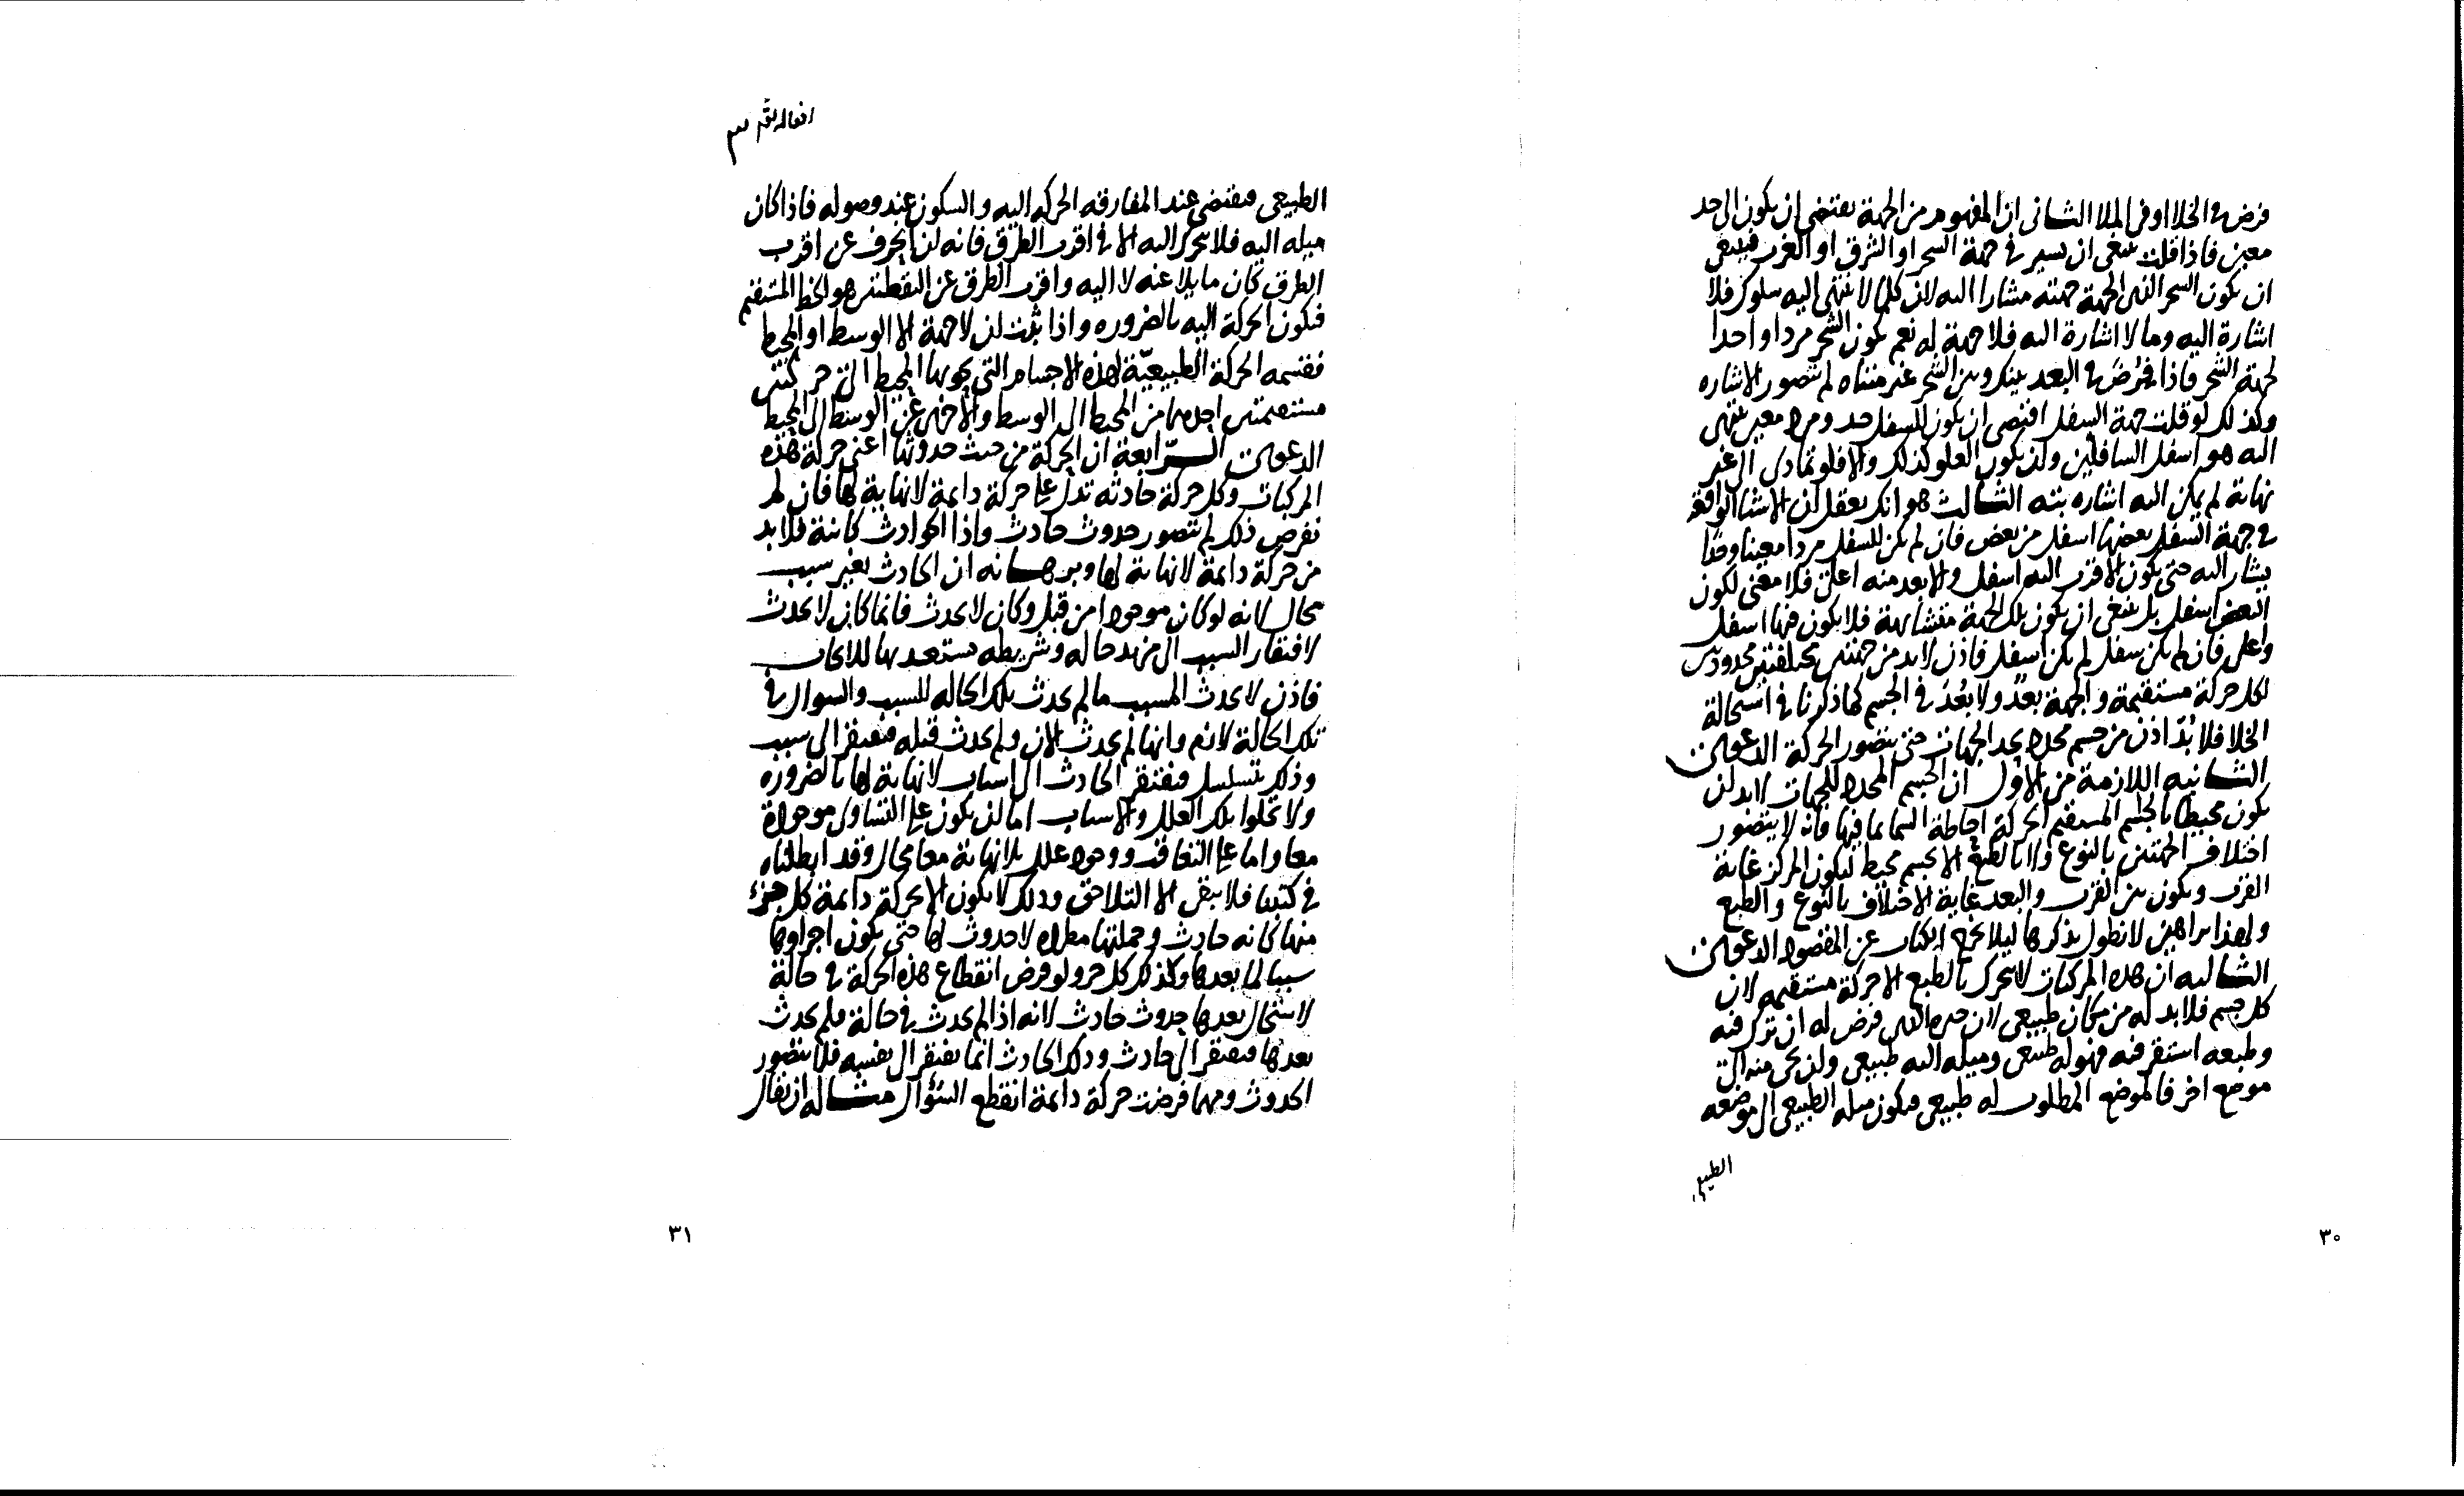 فرض في الخلا او في الملا الثاني ان المفهوم من الجهة يقتضي ان يكون الى حد
معين فاذا قلت ينبغي ان يسير في جهة الشجر او الشرق او الغرب فينبغي
ان يكون الشجر الذي الجهة جهته مشارا اليه لان كلما لا ينتهي اليه سلوك فلا
اشارة اليه وما لا اشارة اليه فلا جهة له نعم يكون الشجر مردا واحدا
لجهة الشجر فاذا فرض في البعد بينك وبين الشجر غير متناه لم يتصور الاشاره
وكذلك لو قلت جهة السفل اقتضى ان يكون للسفل حد ومرد معين ينتهي
اليه هو اسفل السافلين وان يكون العلو كذلك والا فلو تمادى الى غير
نهاية لم يمكن اليه اشاره بته الثالث هو انك تعقل ان الاشيا الواقعة
في جهة السفل بعضها اسفل من بعض فان لم يكن للسفل مردا معينا وحدا
يشار اليه حتى يكون الاقرب اليه اسفل والابعد منه اعلى فلا معنى لكون
البعض اسفل بل ينبغي ان يكون تلك الجهة متشابهة فلا يكون فيها اسفل
واعلى فان لم يكن سفل لم يكن اسفل فاذن لا بد من جهتين مختلفتين محدودتين
لكل حركة مستقيمة والجهة بعد ولا بعد في الجسم كما ذكرنا في استحالة
الخلا فلا بد اذن من جسم محدد يحد الجهات حتى يتصور الحركة الدعوى
الثانيه اللازمة من الاول ان الجسم المحدد للجهات لا بد ان
يكون محيطا بالجسم المستقيم الحركة احاطة السما بما فيها فانه لا يتصور
اختلاف الجهتين بالنوع والا بالطبع الا بجسم محيط ليكون المركز غاية
القرب ويكون بين القرب والبعد غاية الاختلاف بالنوع والطبع
ولهذا براهين لا نطول بذكرها ليلا يخرج الكتاب عن المقصود الدعوى
الثالثه ان هذه المركبات لا يتحرك بالطبع الا حركة مستقيمه لان
كل جسم فلا بد له من مكان طبيعي لان حيزه الذي فرض له ان ترك فيه
وطبعه استقر فيه فهو له طبيعي وميله اليه طبيعي وان تحرك منه الى
موضع اخر فالموضع المطلوب له طبيعي فيكون ميله الطبيعي الى موضعه
الطبيعي
٣٠
الطبيعي فيقتضي عند المفارقه الحركه اليه والسكون عند وصوله فاذا كان
ميله اليه فلا يتحرك اليه الا في اقرب الطرق فانه لن انحرف عن اقرب
الطرق كان مايلا عنه لا اليه واقرب الطرق عن النقطتين هو الخط المستقيم
فيكون الحركة اليه بالضروره واذا ثبت ان لا جهة الا الوسط او المحيط
فقسمه الحركة الطبيعية لهذه الاجسام التي يحويها المحيط الى حركتين
مستقيمتين احدهما من المحيط الى الوسط والاخرى عن الوسط الى المحيط
الدعوى الرابعة ان الحركة من حيث حدوثها اعني حركة هذه
المركبات وكل حركة حادثه تدل على حركة دايمة لا نهاية لها فان لم
نفرض ذلك لم يتصور حدوث حادث واذا الحوادث كاينة فلا بد
من حركة دايمة لا نهاية لها وبرهانه ان الحادث بغير سبب
محال لانه لو كان موجودا من قبل وكان لا يحدث فانما كان لا يحدث
لافتقار السبب الى مزيد حاله وشريطه مستعد بها للايجاب
فاذن لا يحدث المسبب ما لم يحدث تلك الحاله للسبب والسوال في
تلك الحالة لازم وانها لم يحدث الان ولم يحدث قبله فيفتقر الى سبب
وذلك يتسلسل فيفتقر الحادث الى اسباب لا نهاية لها بالضروره
ولا تخلوا تلك العلل والاسباب اما ان يكون على التساوى موجودة
معا واما على التعاقب ووجود علل بلا نهاية معا محال وقد ابطلناه
في كتبنا فلا يبقى الا التلاحق وذلك لا يكون الا بحركة دايمة كل جزء
منها كانه حادث وجملتها مطرد لا حدوث لها حتى يكون اجزاوها
سببا لما بعدها وكذلك كل جزو ولو فرض انقطاع هذه الحركة في حالة
لاستحال بعدها حدوث حادث لانه اذا لم يحدث في حالة فلم يحدث
بعدها فيفتقر الى حادث وذلك الحادث انما يفتقر الى نفسه فلا يتصور
الحدوث ومهما فرضت حركة دايمة انقطع السؤال مثاله ان يقال
٣١